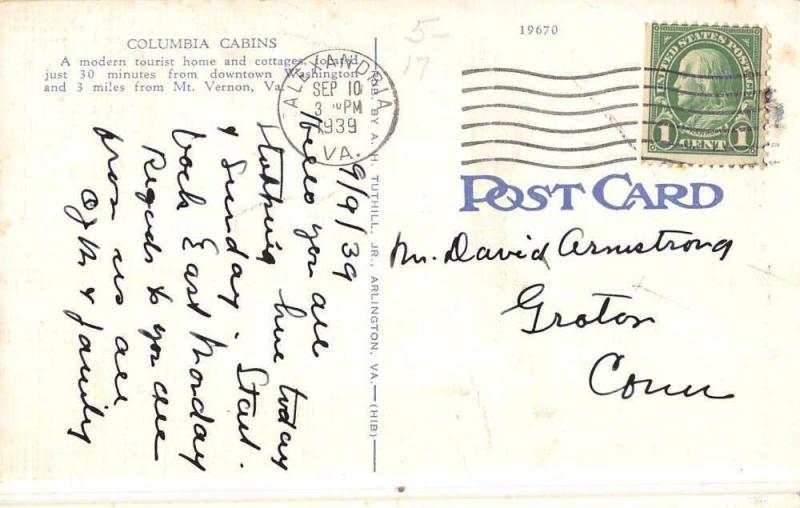 COLUMBIA CABINS
A modern tourist home and cottages, located
just 30 minutes from downtown Washington
and 3 miles from Mt. Vernon, Va.
9/9/39
Hello you all
Stopping here today
& Sunday. Start
back East Monday
Regards to you all
from us all
J M & family
PUB. BY A. H. TUTHILL, JR., ARLINGTON, VA.—(HIB)
5-
17
19670
ALEXANDRIA
SEP 10
3 PM
1939
VA.
UNITED STATES POSTAGE
1 CENT 1
POST CARD
Mr. David Armstrong
Groton
Conn